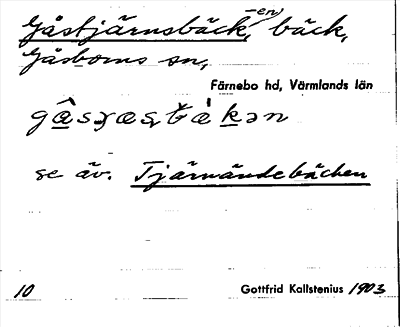 Gåstjärnsbäck, -en, bäck,
Gåsborns sn,
Färnebo hd, Värmlands län
se äv. Tjärnändebäcken
10 Gottfrid Kallstenius 1903